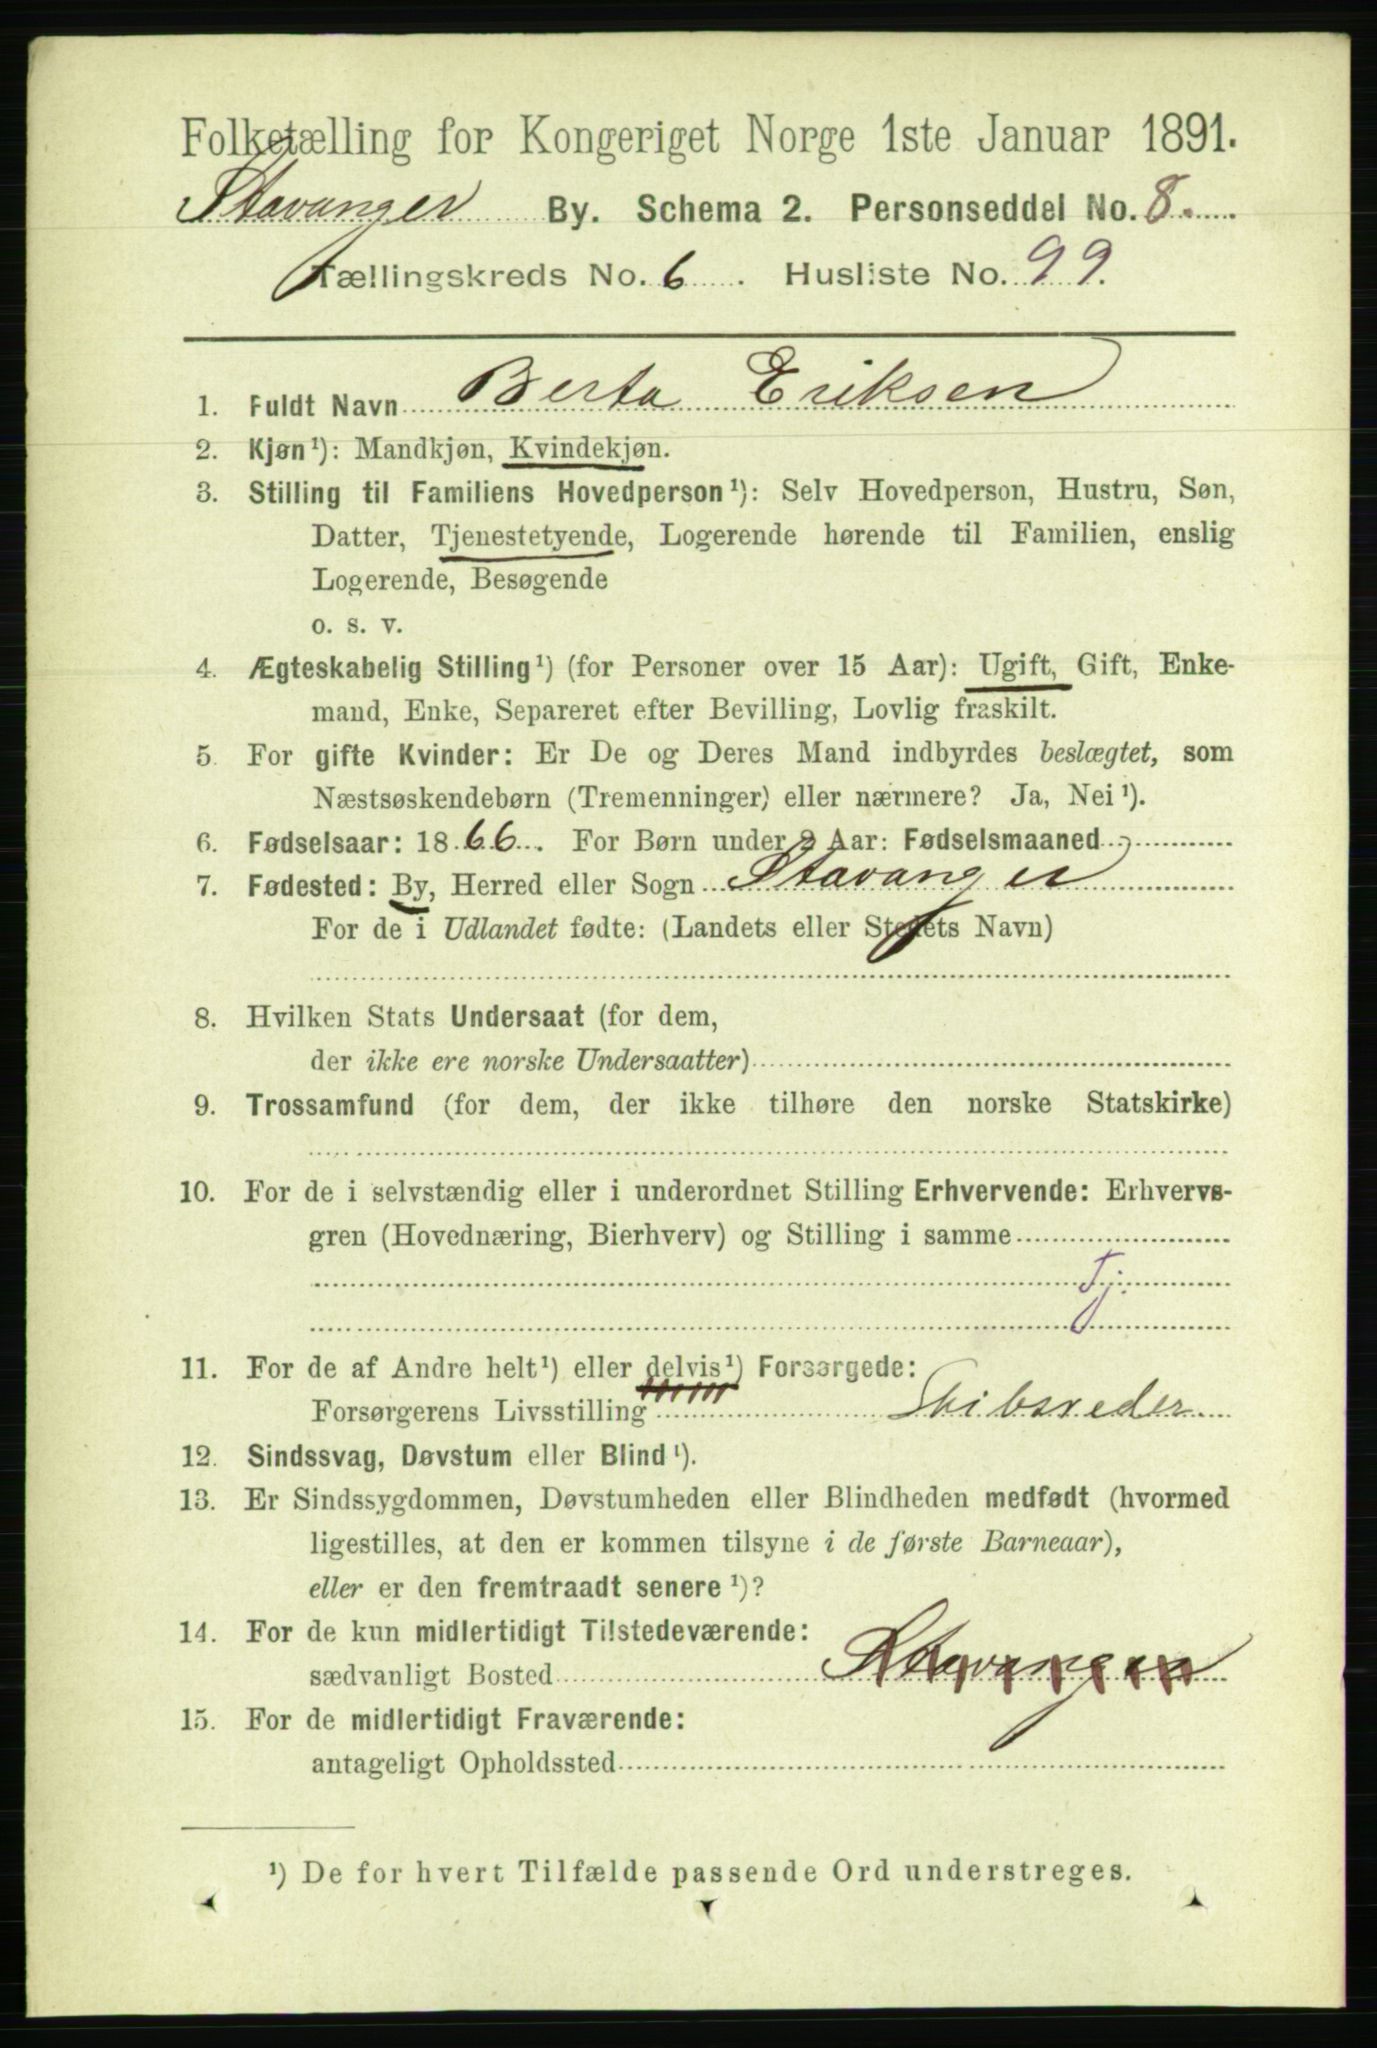 Folketælling for Kongeriget Norge 1ste Januar 1891.
Stavanger By. Schema 2. Personseddel No. 8.
Tællingskreds No. 6. Husliste No. 99.
1. Fuldt Navn Berta Eriksen
2. Kjøn¹): Mandkjøn, Kvindekjøn.
3. Stilling til Familiens Hovedperson¹): Selv Hovedperson, Hustru, Søn,
Datter, Tjenestetyende, Logerende hørende til Familien, enslig
Logerende, Besøgende
o. s. v.
4. Ægteskabelig Stilling¹) (for Personer over 15 Aar): Ugift, Gift, Enke-
mand, Enke, Separeret efter Bevilling, Lovlig fraskilt.
5. For gifte Kvinder: Er De og Deres Mand indbyrdes beslægtet, som
Næstsøskendebørn (Tremenninger) eller nærmere? Ja, Nei¹).
6. Fødselsaar: 1866. For Børn under 2 Aar: Fødselsmaaned
7. Fødested: By, Herred eller Sogn Stavanger
For de i Udlandet fødte: (Landets eller Stedets Navn)
8. Hvilken Stats Undersaat (for dem,
der ikke ere norske Undersaatter)
9. Trossamfund (for dem, der ikke tilhøre den norske Statskirke)
10. For de i selvstændig eller i underordnet Stilling Erhvervende: Erhvervs-
gren (Hovednæring, Bierhverv) og Stilling i samme
Tj.
11. For de af Andre helt¹) eller delvis¹) Forsørgede:
Forsørgerens Livsstilling Skibsreder
12. Sindssvag, Døvstum eller Blind¹).
13. Er Sindssygdommen, Døvstumheden eller Blindheden medfødt (hvormed
ligestilles, at den er kommen tilsyne i de første Barneaar),
eller er den fremtraadt senere¹)?
14. For de kun midlertidigt Tilstedeværende:
sædvanligt Bosted Stavanger
15. For de midlertidigt Fraværende:
antageligt Opholdssted
¹) De for hvert Tilfælde passende Ord understreges.